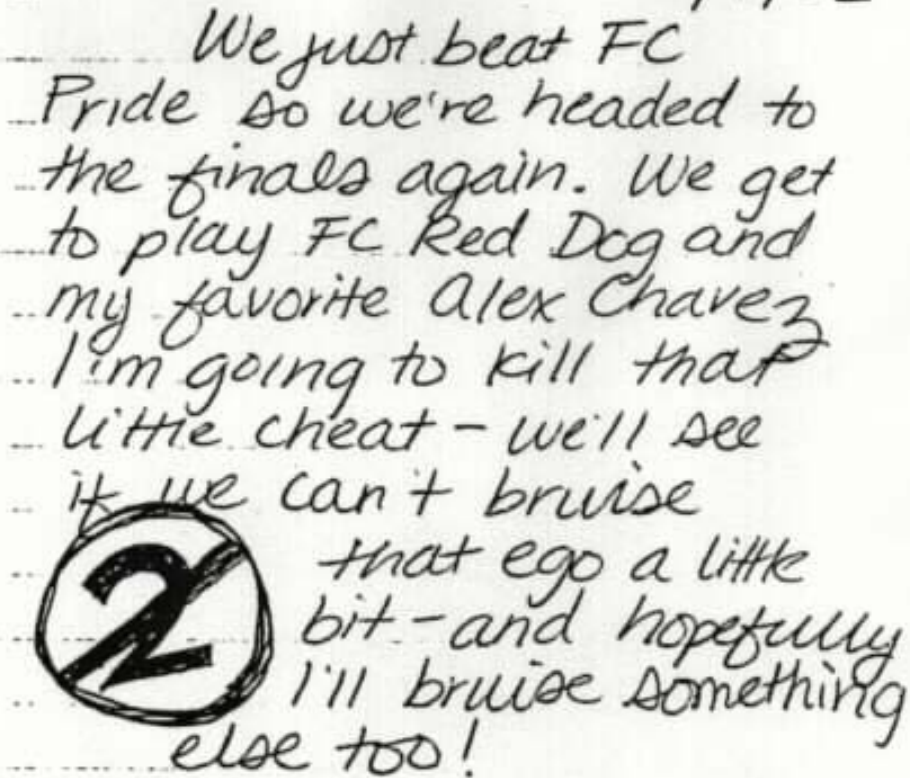 We just beat FC
Pride so we're headed to
the finals again. We get
to play FC Red Dog and
my favorite Alex Chavez
I'm going to kill that
little cheat - we'll see
if we can't bruise
that ego a little
2
bit - and hopefully
I'll bruise something
else too!